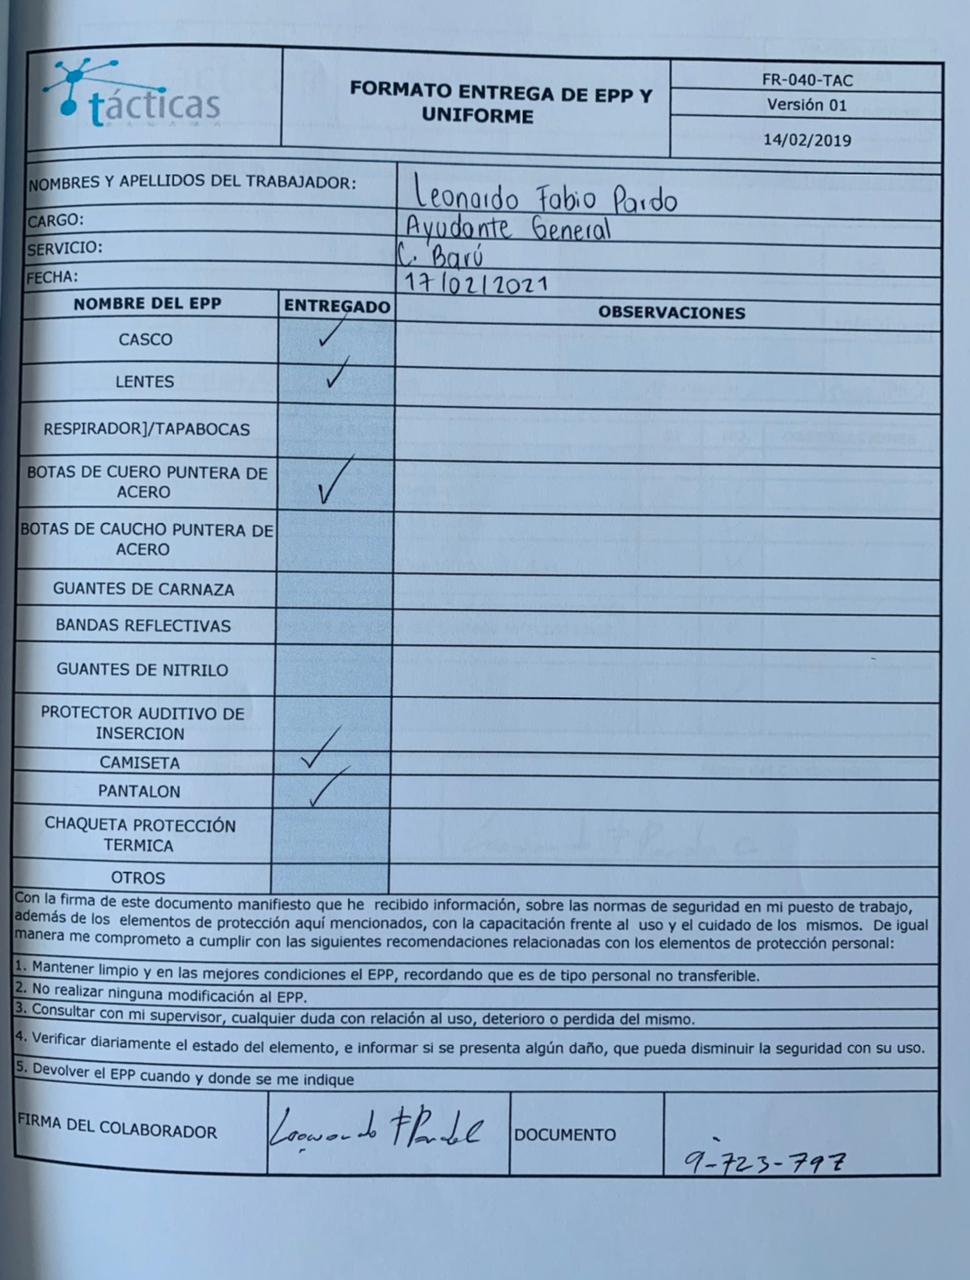 tácticas
PANAMA
FORMATO ENTREGA DE EPP Y
UNIFORME
FR-040-TAC
Versión 01
14/02/2019
NOMBRES Y APELLIDOS DEL TRABAJADOR: Leonardo Fabio Pardo
CARGO: Ayudante General
SERVICIO: C. Barú
FECHA: 17/02/2021
NOMBRE DEL EPP ENTREGADO OBSERVACIONES
CASCO ✓
LENTES ✓
RESPIRADOR]/TAPABOCAS
BOTAS DE CUERO PUNTERA DE
ACERO ✓
BOTAS DE CAUCHO PUNTERA DE
ACERO
GUANTES DE CARNAZA
BANDAS REFLECTIVAS
GUANTES DE NITRILO
PROTECTOR AUDITIVO DE
INSERCION
CAMISETA ✓
PANTALON ✓
CHAQUETA PROTECCIÓN
TERMICA
OTROS
Con la firma de este documento manifiesto que he recibido información, sobre las normas de seguridad en mi puesto de trabajo,
además de los elementos de protección aquí mencionados, con la capacitación frente al uso y el cuidado de los mismos. De igual
manera me comprometo a cumplir con las siguientes recomendaciones relacionadas con los elementos de protección personal:
1. Mantener limpio y en las mejores condiciones el EPP, recordando que es de tipo personal no transferible.
2. No realizar ninguna modificación al EPP.
3. Consultar con mi supervisor, cualquier duda con relación al uso, deterioro o perdida del mismo.
4. Verificar diariamente el estado del elemento, e informar si se presenta algún daño, que pueda disminuir la seguridad con su uso.
5. Devolver el EPP cuando y donde se me indique
FIRMA DEL COLABORADOR Leonardo F Pardo DOCUMENTO 9-723-797